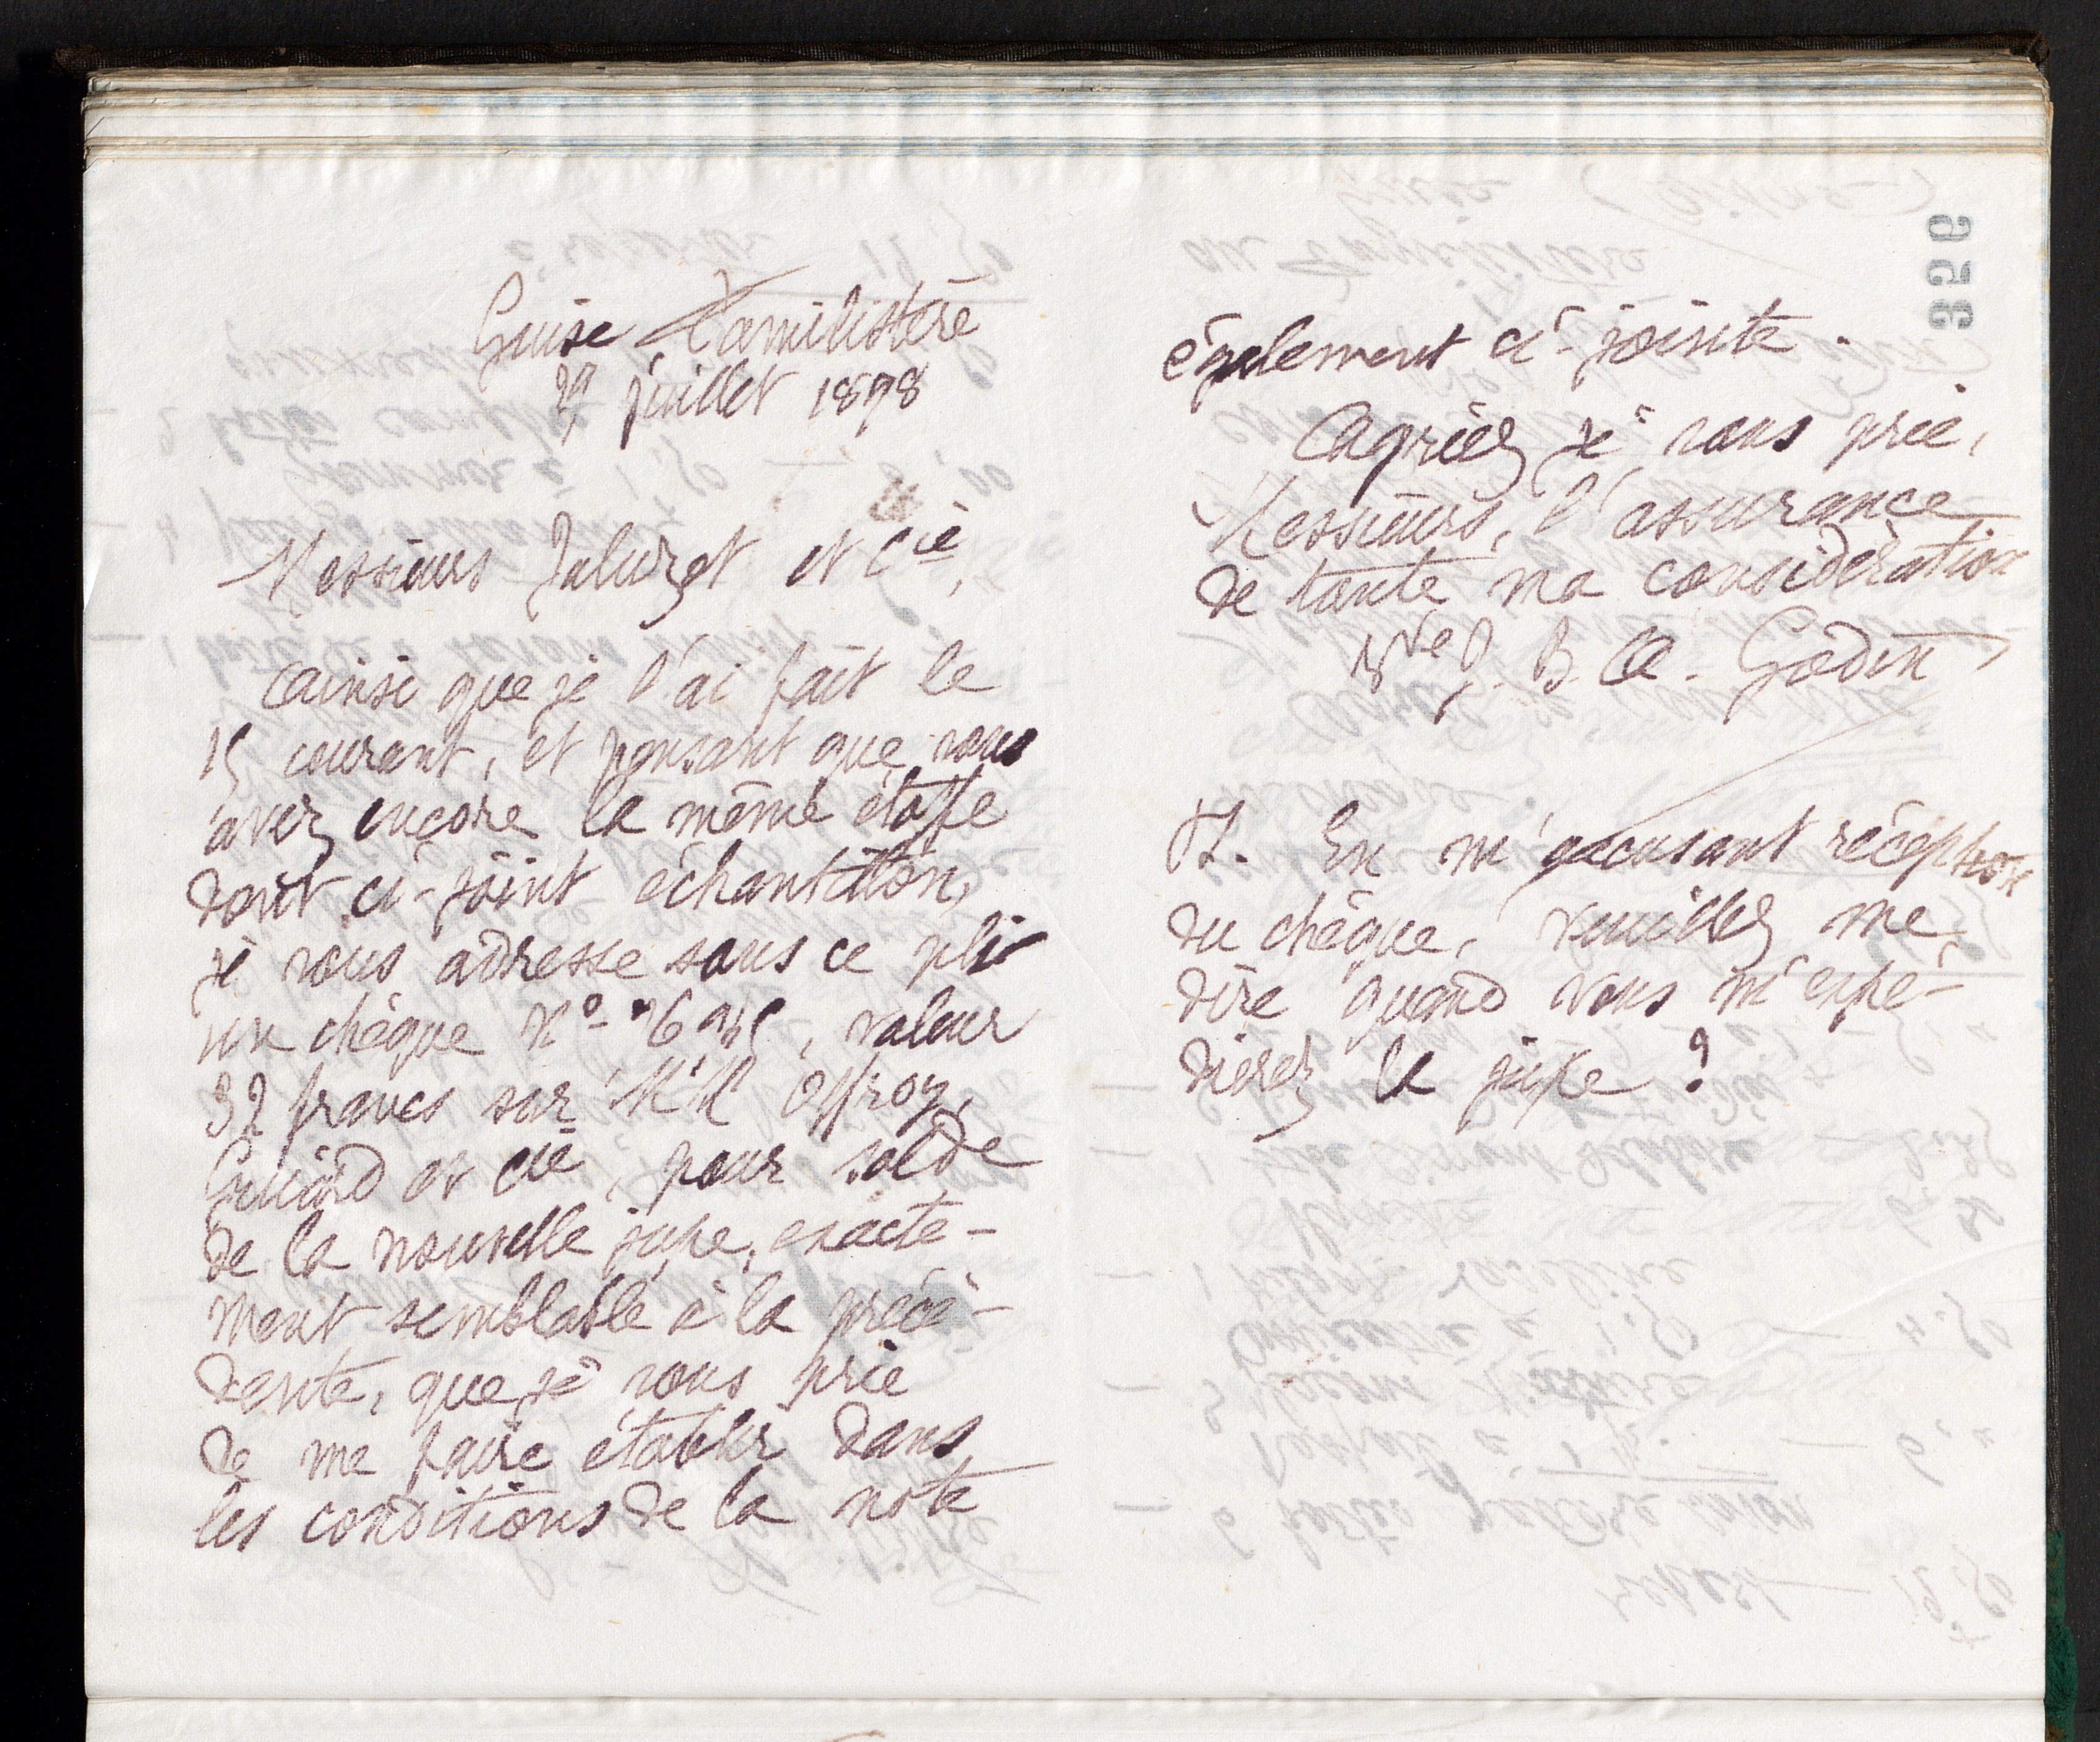 Guise Familistère
29 juillet 1898
Messieurs Jaluzot et Cie,
Ainsi que je l'ai fait le
15 courant, et pensant que vous
avez encore la même étoffe
dont ci-joint échantillon,
je vous adresse sous ce pli
un chèque No valeur
32 francs sur MM Offroy,
Guiard et Cie, pour solde
de la nouvelle jupe, exacte-
ment semblable à la précé-
dente, que je vous prie
de me faire établir dans
les conditions de la note
356
également ci-jointe.
Agréez je vous prie,
Messieurs, l'assurance
de toute ma considération
Vve J. B. A. Godin
P.S. En m'accusant réception
du chèque, veuillez me
dire quand vous m'expé-
dierez la jupe ?